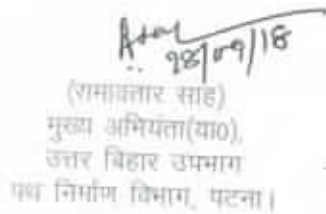 १८/०९/18
(रामावतार साह)
मुख्य अभियंता(या०),
उत्तर बिहार उपभाग
पथ निर्माण विभाग, पटना।